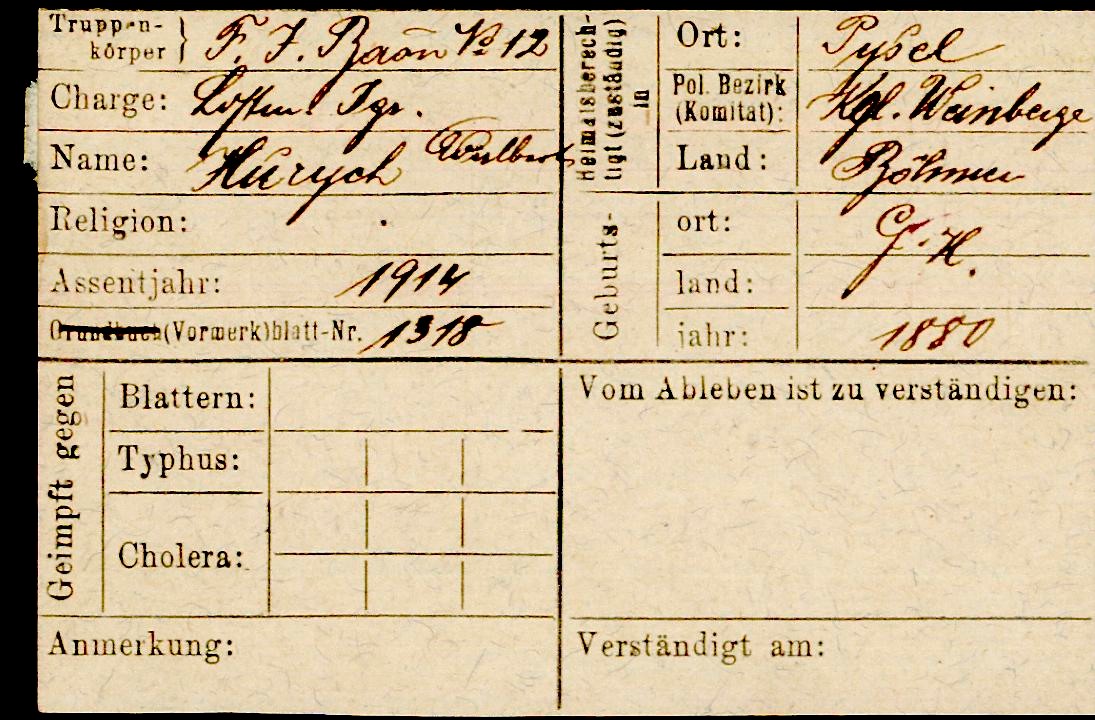 Truppen-
körper } F. J. Baon № 12
Charge: Ldstm. Igr.
Name: Hurych
Religion: .
Assentjahr: 1914
Grundbuch(Vormerk)blatt-Nr. 1318
Heimatsberech-
tigt (zuständig)
in
Ort: Pyšel
Pol. Bezirk
(Komitat): Kgl. Weinberge
Land: Böhmen
Geburts-
ort: G. H.
land:
jahr: 1880
Geimpft gegen
Blattern:
Typhus:
Cholera:
Anmerkung:
Vom Ableben ist zu verständigen:
Verständigt am: